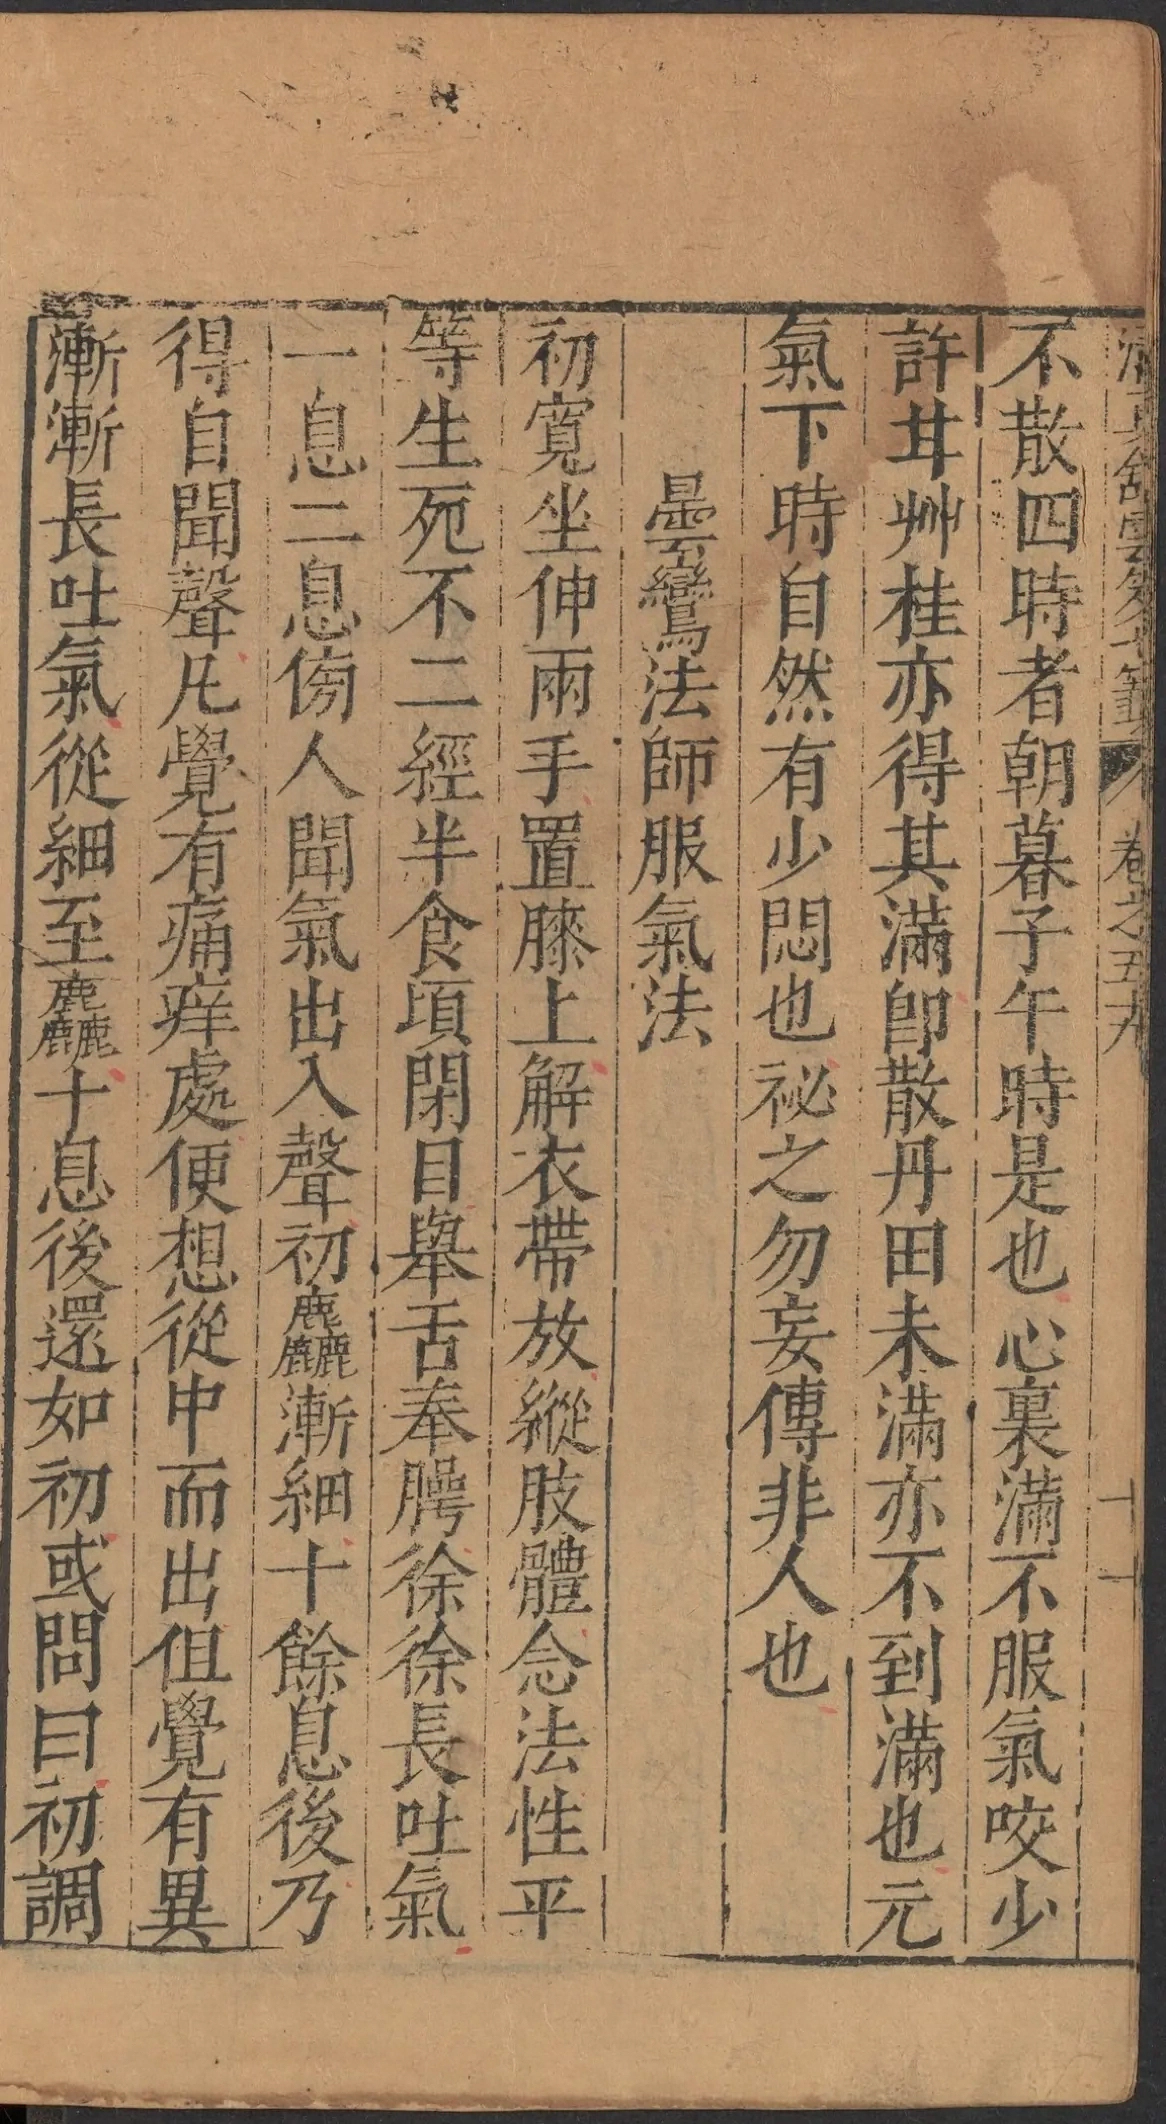 雲笈七籤 卷之五九 十一
不散四時者朝暮子午時是也心裏滿不服氣咬少
許甘艸桂亦得其滿卽散丹田未滿亦不到滿也元
氣下時自然有少悶也祕之勿妄傳非人也
曇鸞法師服氣法
初寬坐伸兩手置膝上解衣帶放縱肢體念法性平
等生死不二經半食頃閉目舉舌奉腭徐徐長吐氣
一息二息傍人聞氣出入聲初麤漸細十餘息後乃
得自聞聲凡覺有痛痒處便想從中而出但覺有異
漸漸長吐氣從細至麤十息後還如初或問曰初調